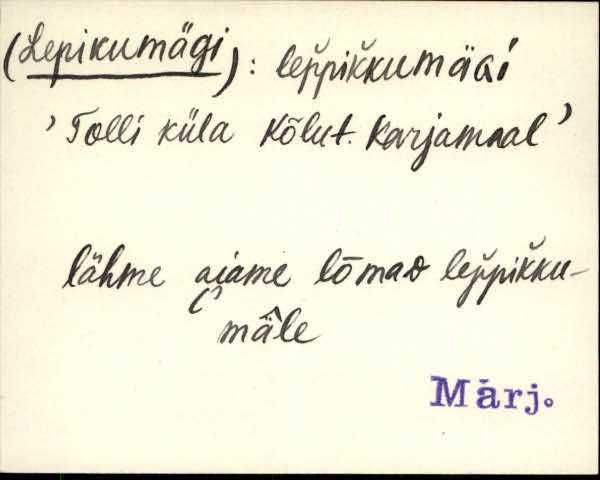 (Lepikumägi): lep̆pik̆kumäɢi
’Tolli küla Kõlut. Karjamaal’
lähme aiame lōmaᴅ lep̆pik̆ku-
mä̂le
Märj.